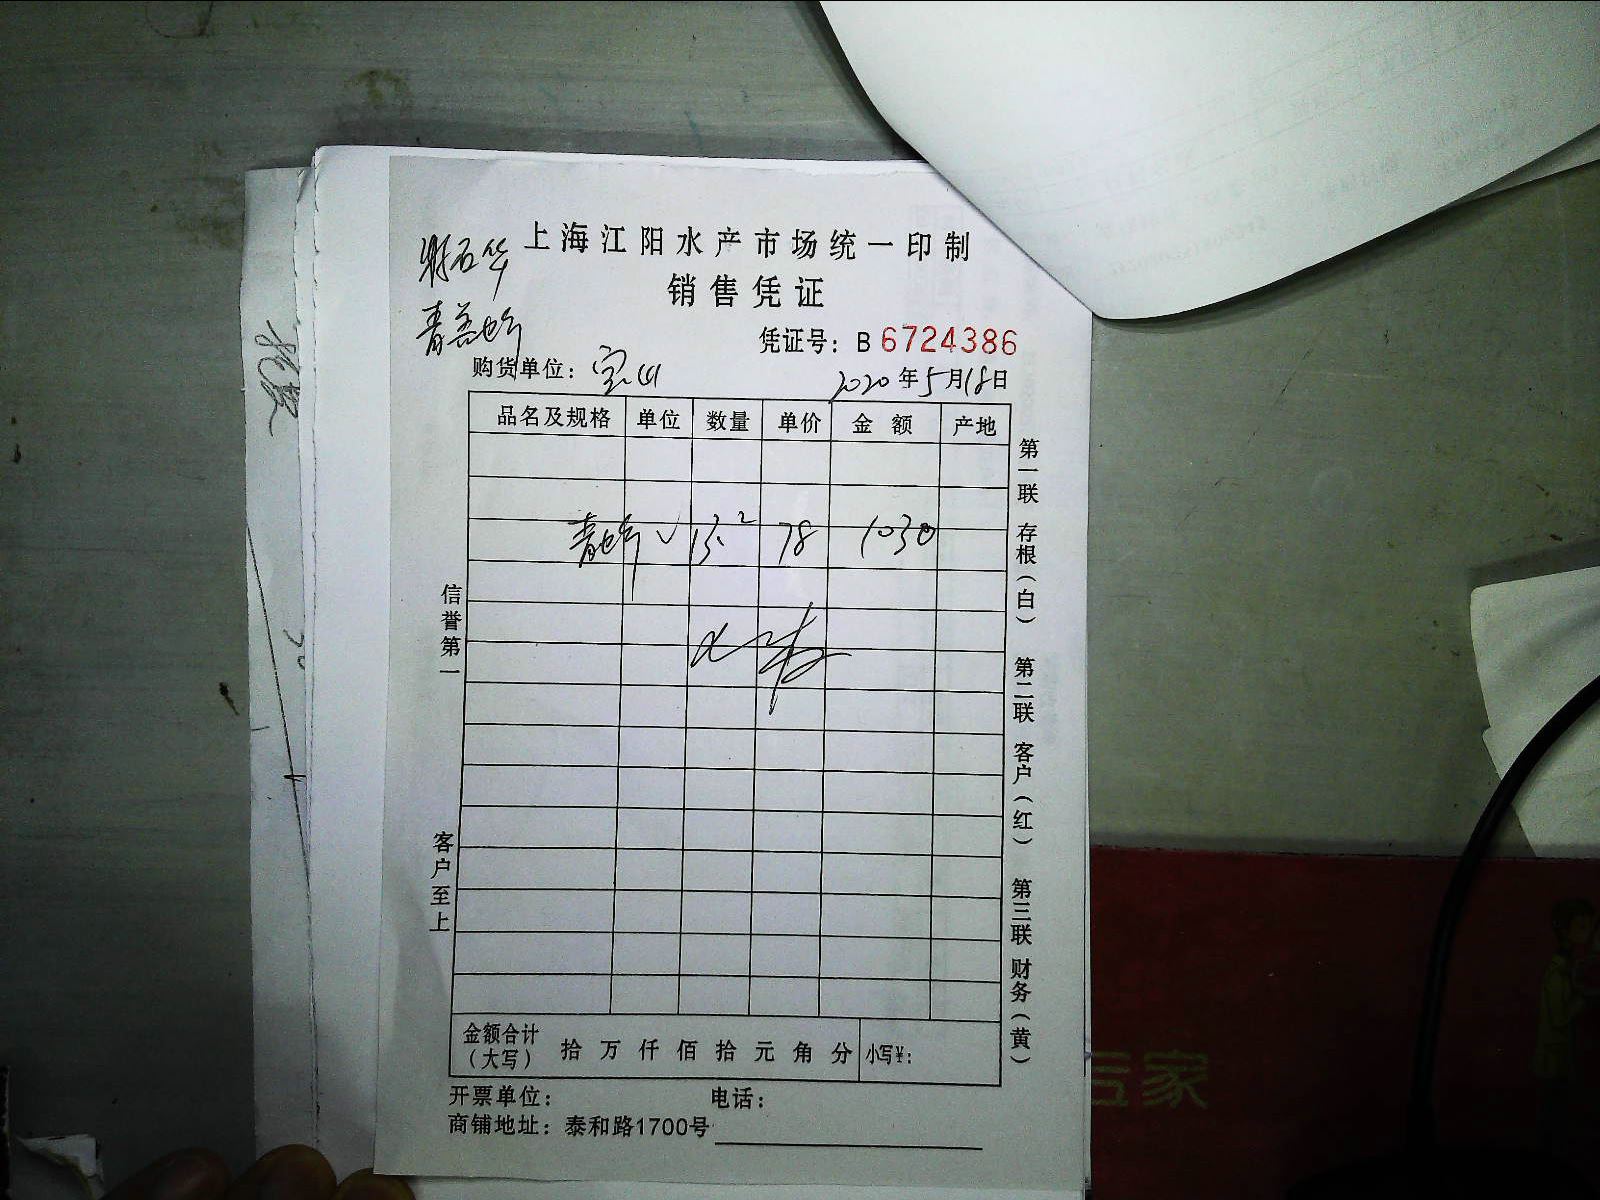 上海江阳水产市场统一印制
销售凭证
凭证号：B 6724386
购货单位：宝山
2020年5月18日
品名及规格 单位 数量 单价 金额 产地
13.2 78 1030
信誉第一
客户至上
第一联 存根（白）
第二联 客户（红）
第三联 财务（黄）
金额合计（大写） 拾万仟佰拾元角分 小写¥：
开票单位： 电话：
商铺地址：泰和路1700号
家